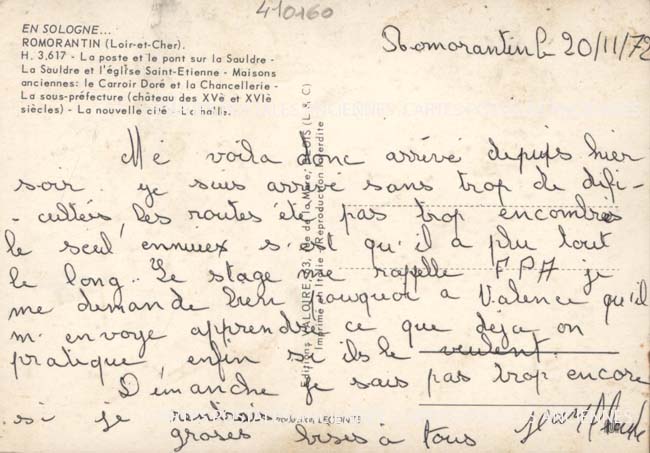 410160
EN SOLOGNE...
ROMORANTIN (Loir-et-Cher).
H. 3,617 - La poste et le pont sur la Sauldre -
La Sauldre et l'église Saint-Etienne - Maisons
anciennes: le Carroir Doré et la Chancellerie -
La sous-préfecture (château des XVè et XVIè
siècles) - La nouvelle cité - La halle.
Romorantin le 20/11/72
Mé voila donc arrivé depuis hier
soir. je suis arrivé sans trop de difi-
-cultés, les routes été pas trop encombrés
le seul ennuiex s'est qu'il a plu tout
le long.. Le stage me rapelle F P A je
me demande bien pourquoi a Valence qu'il
m'envoye apprendre ce que deja on
pratique enfin si ils le veulent.
Dimanche je sais pas trop encore
si je rentrerai
groses bises à tous
Editions VALOIRE, 33, rue de la Mère, BLOIS (L. & C.)
Imprimé en Italie (Reproduction interdite
LECONTE